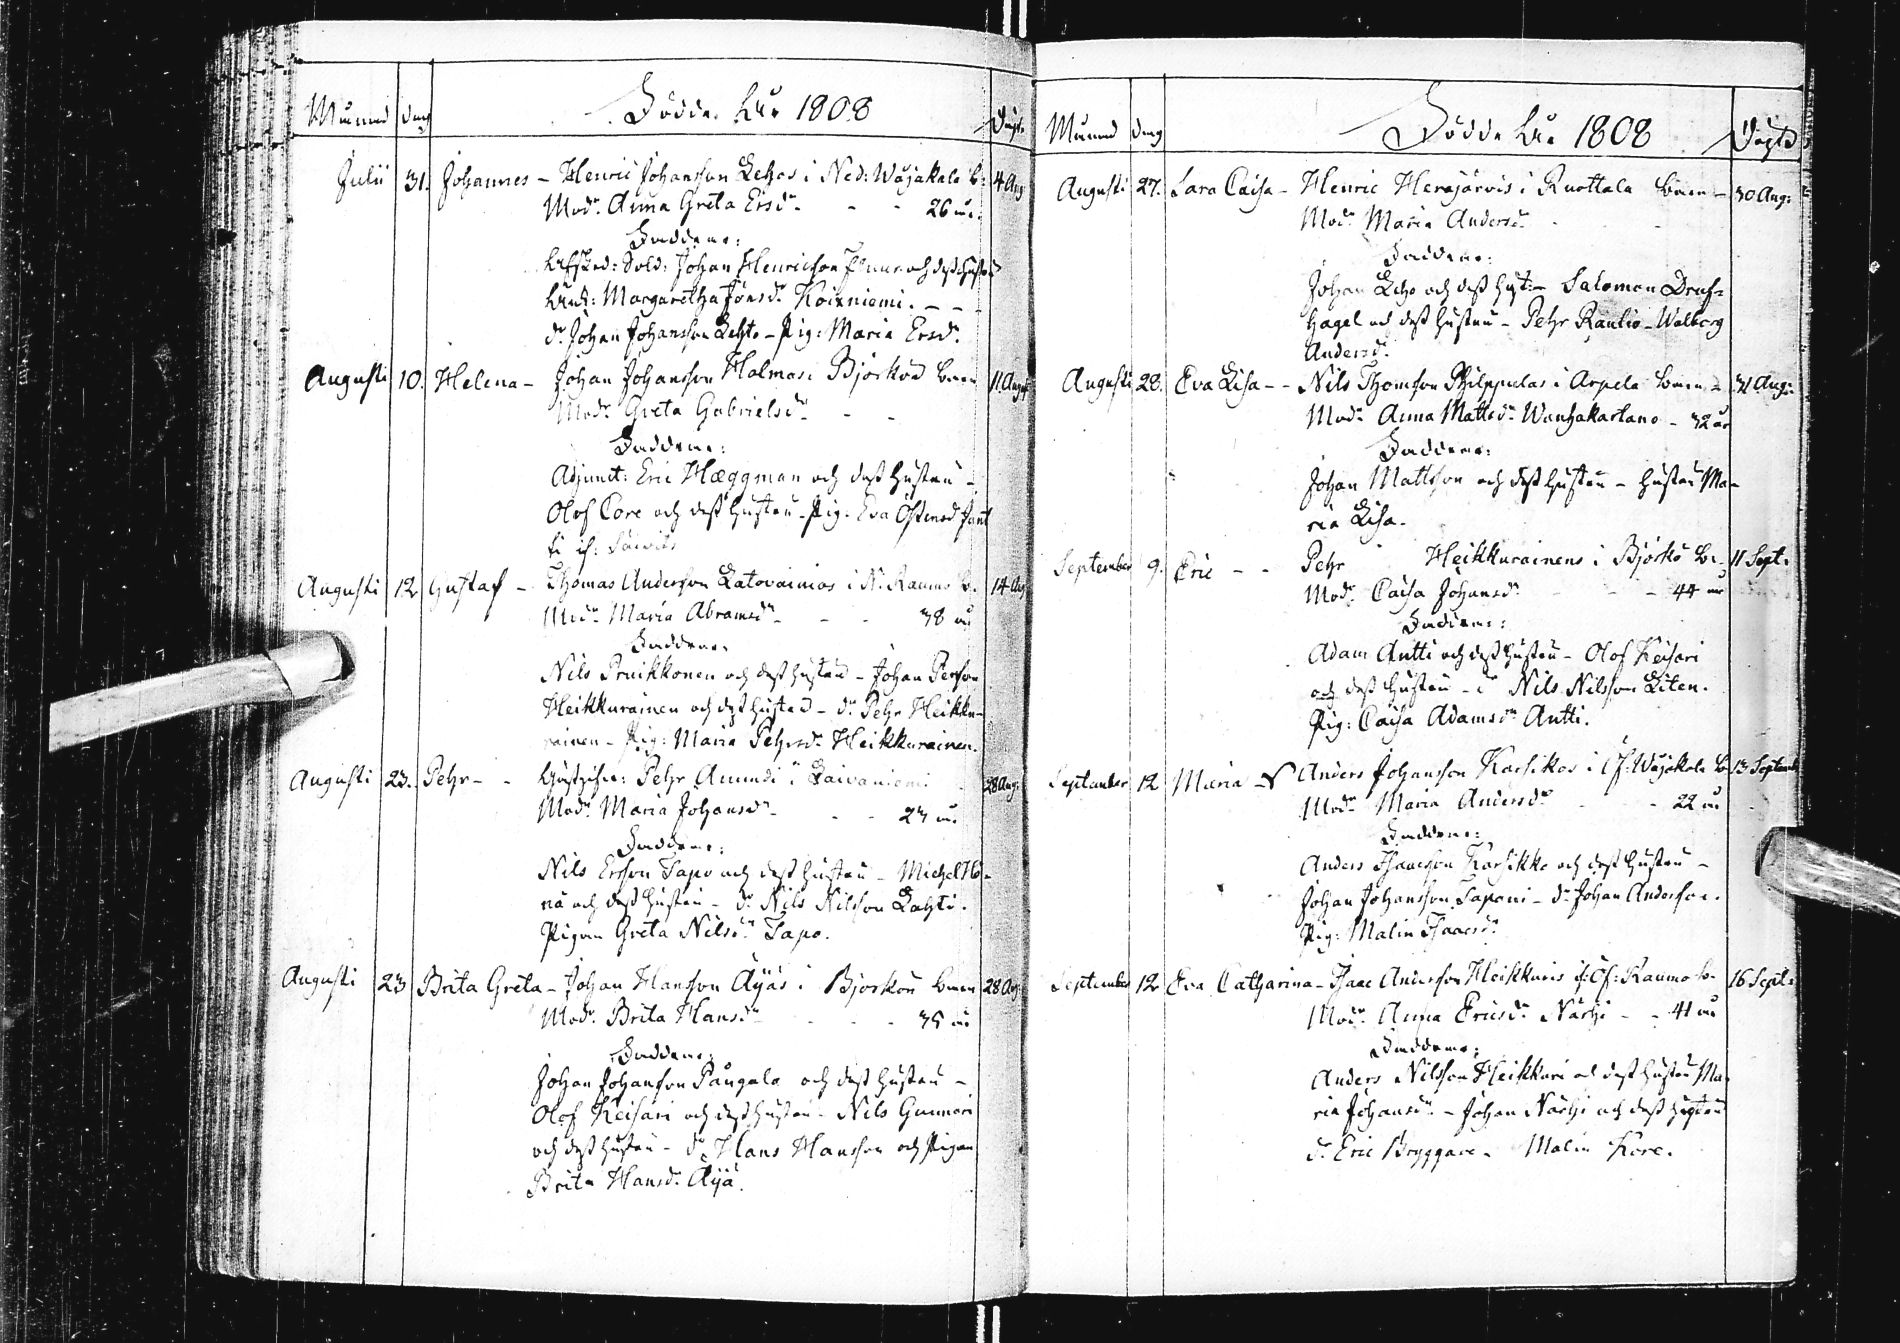 Månad dag Födde År 1808 Döpte
Julii 31. Johannes – Henric Johansson Lehtos i Ned: Wojakala b: 4 Aug
Modr Anna Greta Ersdr - - 26 år.
Faddrar:
Afsked: Sold: Johan Henricsson Finne och dess hustru
Änk: Margaretha Jönsdr Koivuniemi. – –
dr Johan Johansson Lehto – Pig: Maria Ersdr
Augusti 10. Helena – Johan Johansson Halmas i Björkön byen 11 Aug
Modr Greta Gabrielsdr - -
Faddrar:
Adjunct: Eric Hæggman och dess hustru –
Olof Core och dess hustru – Pig: Eva Östensd
Augusti 12 Gustaf – Thomas Andersson Latovainios i N: Raumo b. 14 Aug
Modr Maria Abramsdr - - 38 år
Faddrar:
Nils Pruikkonen och dess hustru – Johan Persson
Heikkurainen och dess hustru – dr Pehr Heikku-
rainen – Pig: Maria Pehrsdr Heikkurainen.
Augusti 23. Pehr – - Pehr Amundi i Laivaniemi 28 Aug:
Modr Maria Johansdr - - 23 år
Faddrar:
Nils Ersson Tapo och dess hustru – Michel Hö-
nä och dess hustru – dr Nils Nilsson Lahti.
Pigan Greta Nilsdr Tapo.
Augusti 23 Brita Greta – Johan Hansson Äyäs i Björkön byen 28 Aug
Modr Brita Hansdr - - - 35 år
Faddrar:
Johan Johansson Pångala och dess hustru –
Olof Keisari och dess hustru – Nils Gunnari
och dess hustru – dr Hans Hansson och Pigan
Brita Hansdr Äyä.
Månad dag Födde År 1808 Döpte
Augusti 27. Sara Caisa – Henric Herajärvis i Ruottala byen – 30 Aug:
Modr Maria Andersdr - -
Faddrar:
Johan Lehto och dess hust: – Salomon Druf-
hagel och dess hustru – Pehr Rautio – Walborg
Andersdr
Augusti 28. Eva Lisa – – Nils Thomsson Philppulas i Arpela byen – 31 Aug:
Modr Anna Mattsdr Wanhakartano – 32 år
Faddrar:
Johan Mattsson och dess hustru – hustru Ma-
ria Lisa.
September 9. Eric – – Pehr Heikkurainens i Björkö b: – 11 Sept:
Modr Caisa Johansdr - - – 44 år
Faddrar:
Adam Antti och dess hustru – Olof Keisari
och dess hustru – dr Nils Nilsson Liten.
Pig: Caisa Adamsdr Antti.
September 12 Maria – Anders Johansson Karsikos i Öf: Wojakala b 13 September
Modr Maria Andersdr - - 22 år
Faddrar:
Anders Isaacsson Karsikko och dess hustru –
Johan Johansson Taponi – dr Johan Andersson.
Pig: Malin Isaacsdr
September 12 Eva Catharina – Isaac Andersson Heikkuris i Öf: Raumo b – 16 Sept:
Modr Anna Ericsdr Närhi – – 41 år
Faddrar:
Anders Nilsson Heikkuri och dess hustru Ma-
ria Johansdr – Johan Närhi och dess hustru
dr Eric Bryggare – Malin Kore.